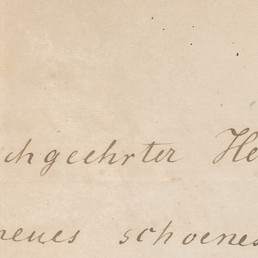 chgeehrter He
neues schoenes